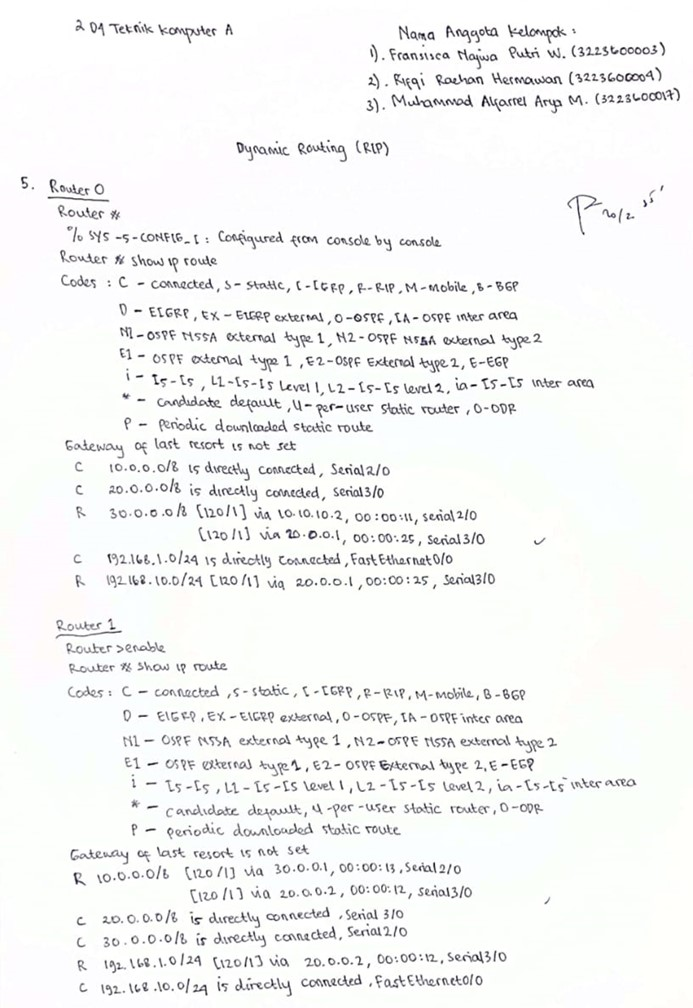 2 D4 Teknik Komputer A
Nama Anggota Kelompok :
1). Fransisca Najwa Putri W. (3223600003)
2). Rifqi Raehan Hermawan (3223600004)
3). Muhammad Alfarrel Arya M. (3223600017)
Dynamic Routing (RIP)
5. Router 0
Router #
% SYS -5-CONFIG_I : Configured from console by console
Router # show ip route
Codes : C - connected, S- static, I-IGRP, R-RIP, M-mobile, B-BGP
D - EIGRP, EX - EIGRP external, O-OSPF, IA-OSPF inter area
N1-OSPF NSSA external type 1, N2-OSPF NSSA external type 2
E1 - OSPF external type 1, E2-OSPF External type 2, E-EGP
i - IS-IS, L1-IS-IS Level 1, L2-IS-IS level 2, ia-IS-IS inter area
* - candidate default, U-per-user static router, O-ODR
P - Periodic downloaded static route
Gateway of last resort is not set
C 10.0.0.0/8 is directly connected, Serial2/0
C 20.0.0.0/8 is directly connected, Serial3/0
R 30.0.0.0/8 [120/1] via 10.10.10.2, 00:00:11, serial2/0
[120/1] via 20.0.0.1, 00:00:25, Serial3/0
C 192.168.1.0/24 is directly connected, FastEthernet0/0
R 192.168.10.0/24 [120/1] via 20.0.0.1, 00:00:25, Serial3/0
Router 1
Router>enable
Router # show ip route
Codes : C - connected, S-static, I-IGRP, R-RIP, M-mobile, B-BGP
D - EIGRP, EX-EIGRP external, O-OSPF, IA-OSPF inter area
N1 - OSPF NSSA external type 1, N2-OSPF NSSA external type 2
E1 - OSPF external type 1, E2-OSPF External type 2, E-EGP
i - IS-IS, L1 - IS-IS Level 1, L2 - IS-IS Level 2, ia-IS-IS inter area
* - candidate default, U-per-user static router, O-ODR
P - periodic downloaded static route
Gateway of last resort is not set
R 10.0.0.0/8 [120/1] via 30.0.0.1, 00:00:13, Serial2/0
[120/1] via 20.0.0.2, 00:00:12, serial3/0
C 20.0.0.0/8 is directly connected, Serial 3/0
C 30.0.0.0/8 is directly connected, Serial2/0
R 192.168.1.0/24 [120/1] via 20.0.0.2, 00:00:12, Serial3/0
C 192.168.10.0/24 is directly connected, FastEthernet0/0